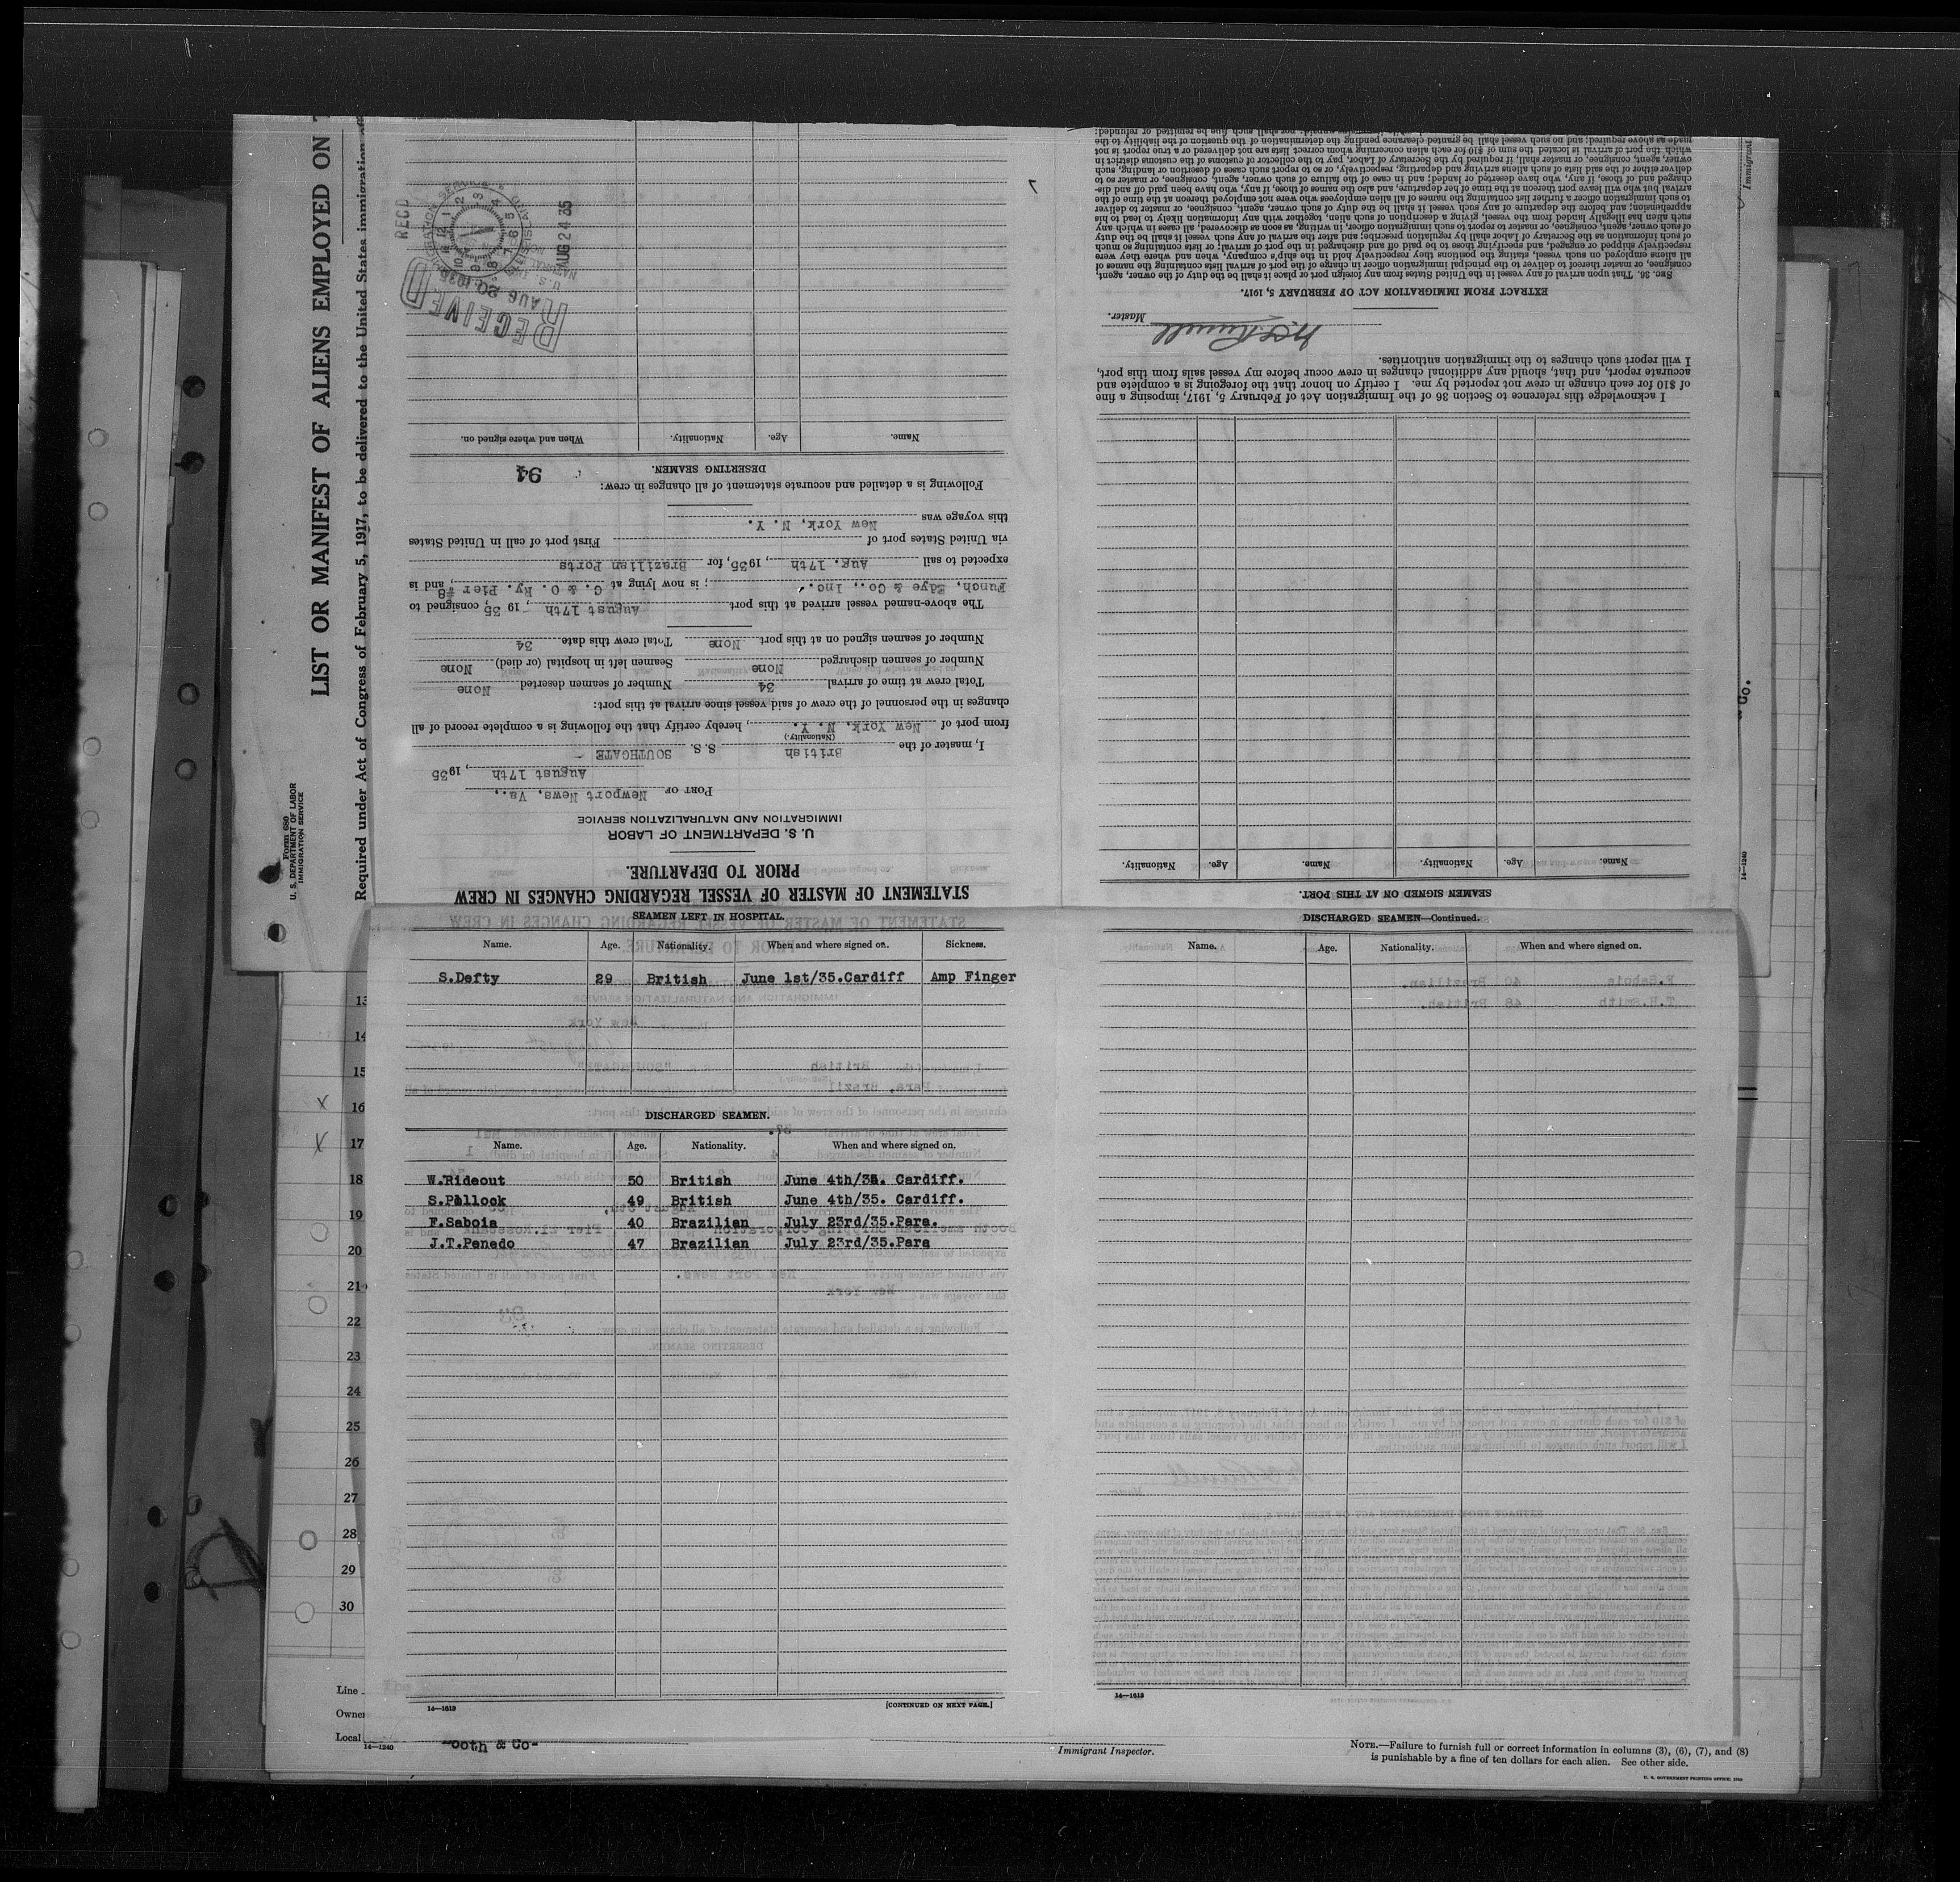 LIST OR MANIFEST OF ALIENS EMPLOYED ON
Required under Act of Congress of February 5, 1917, to be delivered to the United States immigration
Form 680
U. S. DEPARTMENT OF LABOR
IMMIGRATION SERVICE
STATEMENT OF MASTER OF VESSEL REGARDING CHANGES IN CREW
PRIOR TO DEPARTURE.
U. S. DEPARTMENT OF LABOR
IMMIGRATION AND NATURALIZATION SERVICE
PORT OF Newport News, Va.,
August 17th, 1935
I, master of the British S. S. SOUTHGATE
(Nationality.)
from port of New York, N. Y., hereby certify that the following is a complete record of all
changes in the personnel of the crew of said vessel since arrival at this port:
Total crew at time of arrival 34 Number of seamen deserted None
Number of seamen discharged None Seamen left in hospital (or died) None
Number of seamen signed on at this port None Total crew this date 34
The above-named vessel arrived at this port August 17th, 1935, consigned to
Funch, Edye & Co., Inc.; is now lying at C. & O. Ry. Pier #8, and is
expected to sail Aug. 17th, 1935, for Brazilian Ports
via United States port of First port of call in United States
this voyage was New York, N. Y.
Following is a detailed and accurate statement of all changes in crew:
94
DESERTING SEAMEN.
Name. Age. Nationality. When and where signed on.
RECEIVED
AUG 20 1935
REC'D
AUG 24 35
SEAMEN SIGNED ON AT THIS PORT.
Name. Age. Nationality. Name. Age. Nationality.
I acknowledge this reference to Section 36 of the Immigration Act of February 5, 1917, imposing a fine
of $10 for each change in crew not reported by me. I certify on honor that the foregoing is a complete and
accurate report, and that, should any additional changes in crew occur before my vessel sails from this port,
I will report such changes to the immigration authorities.
Master.
EXTRACT FROM IMMIGRATION ACT OF FEBRUARY 5, 1917.
SEC. 36. That upon arrival of any vessel in the United States from any foreign port or place it shall be the duty of the owner, agent,
consignee, or master thereof to deliver to the principal immigration officer in charge of the port of arrival lists containing the names of
all aliens employed on such vessel, stating the positions they respectively hold in the ship's company, when and where they were
respectively shipped or engaged, and specifying those to be paid off and discharged in the port of arrival; or lists containing so much
of such information as the Secretary of Labor shall by regulation prescribe; and after the arrival of any such vessel it shall be the duty
of such owner, agent, consignee, or master to report to such immigration officer, in writing, as soon as discovered, all cases in which any
such alien has illegally landed from the vessel, giving a description of such alien, together with any information likely to lead to his
apprehension; and before the departure of any such vessel it shall be the duty of such owner, agent, consignee, or master to deliver
to such immigration officer a further list containing the names of all alien employees who were not employed thereon at the time of the
arrival but who will leave port thereon at the time of her departure, and also the names of those, if any, who have been paid off and dis-
charged and of those, if any, who have deserted or landed; and in case of the failure of such owner, agent, consignee, or master to
deliver either of the said lists of such aliens arriving and departing, respectively, or so to report such cases of desertion or landing, such
owner, agent, consignee, or master shall, if required by the Secretary of Labor, pay to the collector of customs of the customs district in
which the port of arrival is located the sum of $10 for each alien concerning whom correct lists are not delivered or a true report is not
made as above required; and no such vessel shall be granted clearance pending the determination of the question of the liability to the
Immigrant
14—1240
SEAMEN LEFT IN HOSPITAL.
Name. Age. Nationality. When and where signed on. Sickness.
S.Defty 29 British June 1st/35.Cardiff Amp Finger
DISCHARGED SEAMEN.
Name. Age. Nationality. When and where signed on.
W.Rideout 50 British June 4th/35. Cardiff.
S.Pollock 49 British June 4th/35. Cardiff.
F.Saboia 40 Brazilian July 23rd/35.Para.
J.T.Penedo 47 Brazilian July 23rd/35.Para
14—1613
[CONTINUED ON NEXT PAGE.]
DISCHARGED SEAMEN—Continued.
Name. Age. Nationality. When and where signed on.
14—1613
13
14
15
16
17
18
19
20
21
22
23
24
25
26
27
28
29
30
Line
Owner
Local
14—1240
ooth & Co-
Immigrant Inspector.
NOTE.—Failure to furnish full or correct information in columns (3), (6), (7), and (8)
is punishable by a fine of ten dollars for each alien. See other side.
U. S. GOVERNMENT PRINTING OFFICE